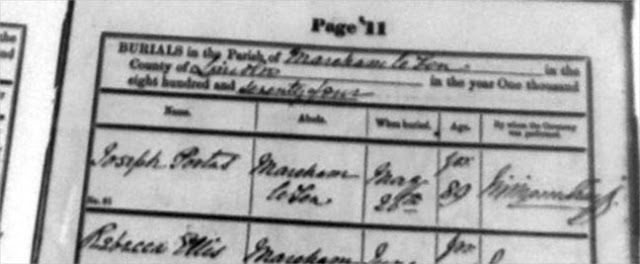 Page 11
BURIALS in the Parish of Mareham le Fen in the
County of Lincoln in the year One thousand
eight hundred and seventy four
Name. Abode. When buried. Age. By whom the Ceremony was performed.
Joseph Mareham May 89
le Fen 28th
No. 81
Rebecca Ellis Mareham June